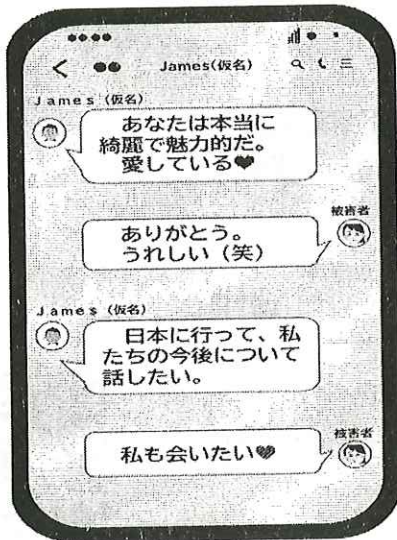 James(仮名)
James(仮名)
あなたは本当に
綺麗で魅力的だ。
愛している♥
被害者
ありがとう。
うれしい(笑)
James(仮名)
日本に行って、私
たちの今後について
話したい。
被害者
私も会いたい♥